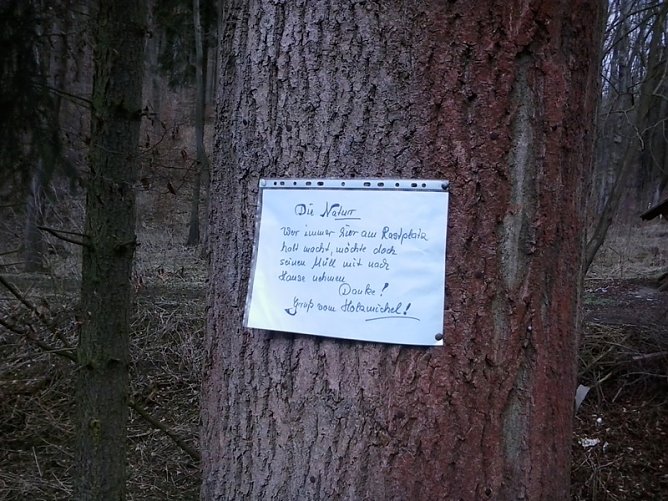 Die Natur
Wer immer hier am Rastplatz
halt macht, möchte doch
seinen Müll mit nach
Hause nehmen
Danke!
Gruß vom Holzmichel!